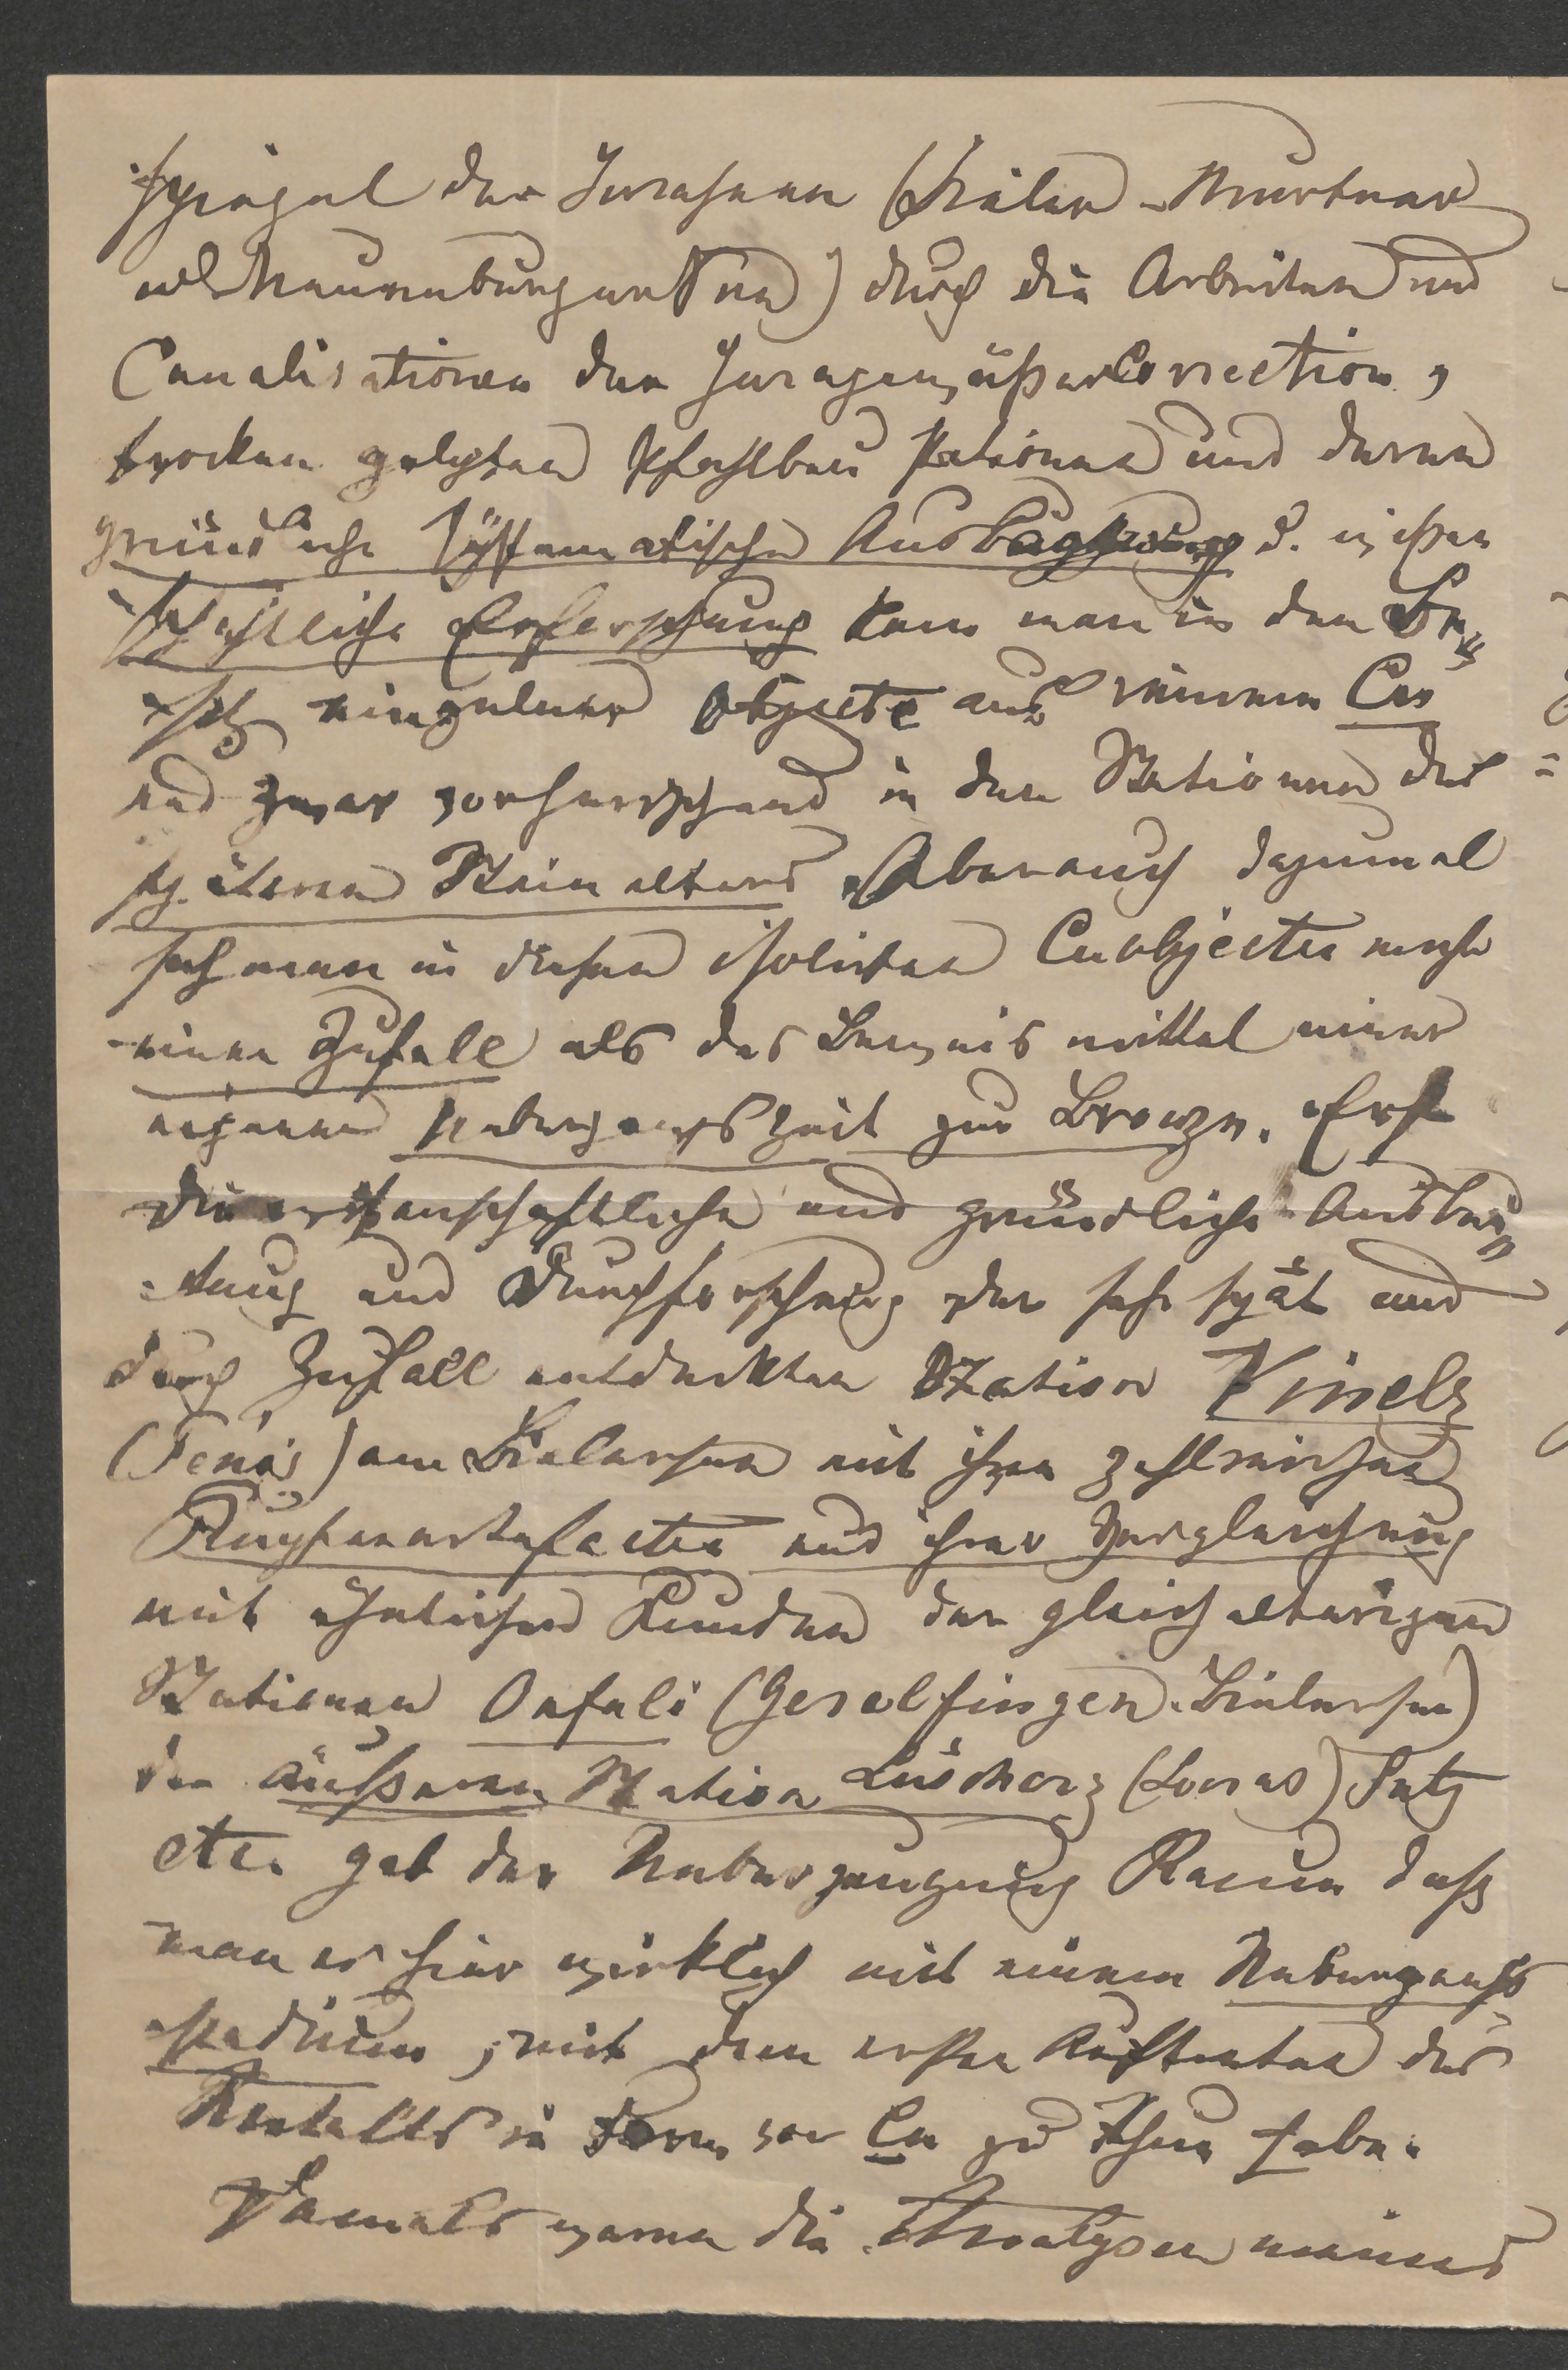 spiegel der Juraseen (Bieler-Murtner
und Neuenburger See) durch die Arbeiten und
Canalisationen der Juragewässer Correction,
trocken gelegten Pfahlbau stationen und deren
gründliche systematische Ausbaggerung d. wissen
schaftliche Erforschung kam man in den Be„
sitz einzelner Objecte aus reinem Cu
und zwar vorherrschend in den Stationen des
späteren Steinalters. Aber auch dazumal
sah man in diesen isolirten Cuobjecten mehr
einen Zufall als das Beweismittel einer
eigenen Uebergangszeit zur Bronze. Erst
die wissenschaftliche und gründliche Ausbeu„
tung und Durchforschung der sehr spät und
durch Zufall entdeckten Station Vinelz
(Fenis) am Bielersee mit ihren zahlreichen
Kupferartefacten und ihrer Vergleichung
mit ähnlichen Funden der gleichalterigen
Stationen Oefeli (Gerolfingen. Bielersee)
der äusseren Station Lüscherz (Locras) Sutz
etc. gab der Ueberzeugung Raum dass
man es hier wirklich mit einem Uebergangs
stadium, mit dem ersten Auftreten des
Metalls in Form von Cu zu thun habe.
Damals waren die Analysen meines